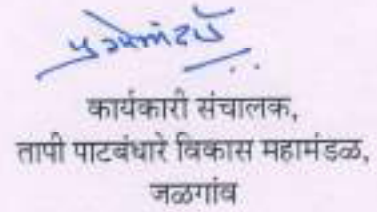 कार्यकारी संचालक,
तापी पाटबंधारे विकास महामंडळ,
जळगांव